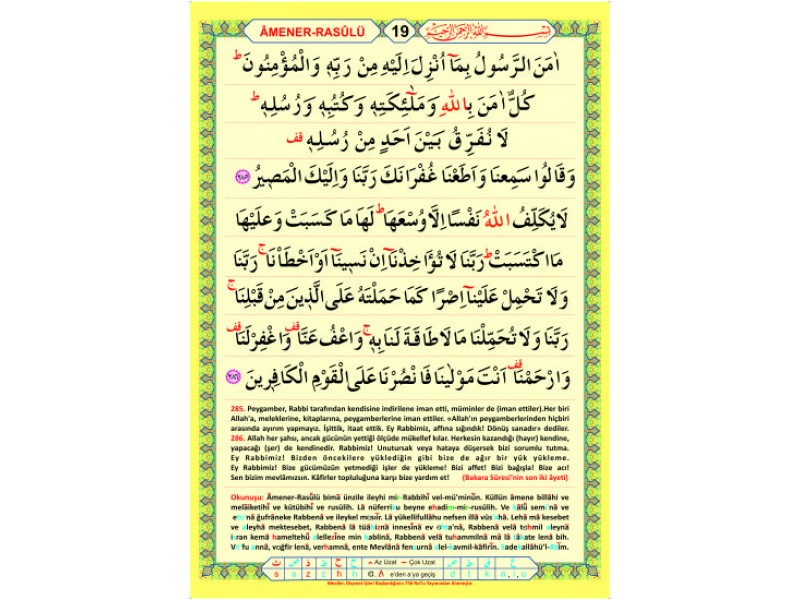 ÂMENER-RASÛLÜ 19 بسم الله الرحمن الرحيم
اٰمَنَ الرَّسُولُ بِمَٓا اُنْزِلَ اِلَيْهِ مِنْ رَبِّه۪ وَالْمُؤْمِنُونَۜ
كُلٌّ اٰمَنَ بِاللّٰهِ وَمَلٰٓئِكَتِه۪ وَكُتُبِه۪ وَرُسُلِه۪ۜ
لَا نُفَرِّقُ بَيْنَ اَحَدٍ مِنْ رُسُلِه۪ قف
وَقَالُوا سَمِعْنَا وَاَطَعْنَا غُفْرَانَكَ رَبَّنَا وَاِلَيْكَ الْمَص۪يرُ ٢٨٥
لَا يُكَلِّفُ اللّٰهُ نَفْسًا اِلَّا وُسْعَهَاۜ لَهَا مَا كَسَبَتْ وَعَلَيْهَا
مَا اكْتَسَبَتْۜ رَبَّنَا لَا تُؤَاخِذْنَٓا اِنْ نَس۪ينَٓا اَوْ اَخْطَاْنَاۚ رَبَّنَا
وَلَا تَحْمِلْ عَلَيْنَٓا اِصْرًا كَمَا حَمَلْتَهُ عَلَى الَّذ۪ينَ مِنْ قَبْلِنَاۚ
رَبَّنَا وَلَا تُحَمِّلْنَا مَا لَا طَاقَةَ لَنَا بِه۪ۚ وَاعْفُ عَنَّا قف وَاغْفِرْلَنَا قف
وَارْحَمْنَا قف اَنْتَ مَوْلٰينَا فَانْصُرْنَا عَلَى الْقَوْمِ الْكَافِر۪ينَ ٢٨٦
285. Peygamber, Rabbi tarafından kendisine indirilene iman etti, müminler de (iman ettiler).Her biri
Allah'a, meleklerine, kitaplarına, peygamberlerine iman ettiler. «Allah'ın peygamberlerinden hiçbiri
arasında ayırım yapmayız. İşittik, itaat ettik. Ey Rabbimiz, affına sığındık! Dönüş sanadır» dediler.
286. Allah her şahsı, ancak gücünün yettiği ölçüde mükellef kılar. Herkesin kazandığı (hayır) kendine,
yapacağı (şer) de kendinedir. Rabbimiz! Unutursak veya hataya düşersek bizi sorumlu tutma.
Ey Rabbimiz! Bizden öncekilere yüklediğin gibi bize de ağır bir yük yükleme.
Ey Rabbimiz! Bize gücümüzün yetmediği işler de yükleme! Bizi affet! Bizi bağışla! Bize acı!
Sen bizim mevlâmızsın. Kâfirler topluluğuna karşı bize yardım et! (Bakara Sûresi'nin son iki âyeti)
Okunuşu: Âmener-Rasûlü bimâ ünzile ileyhi mir-Rabbihî vel-mü'minûn. Küllün âmene billâhi ve
melâiketihî ve kütübihî ve rusülih. Lâ nüferriku beyne ehadim-mir-rusülih. Ve kâlû semi'nâ ve
eta'nâ ğufrâneke Rabbenâ ve ileykel masîr. Lâ yükellifullâhu nefsen illâ vüs'ahâ. Lehâ mâ kesebet
ve aleyhâ mektesebet, Rabbenâ lâ tüâhiznâ innesînâ ev ahta'nâ, Rabbenâ velâ tahmil aleynâ
isran kemâ hameltehû alellezîne min kablinâ, Rabbenâ velâ tuhammilnâ mâ lâ tâkate lenâ bih.
Va'fu annâ, vağfir lenâ, verhamnâ, ente Mevlânâ fensurnâ alel-kavmil-kâfirîn. Sadekallâhü'l-Azîm.
Az Uzat Çok Uzat
s s z z h h e'den a'ya geçiş d t k a,ı,u